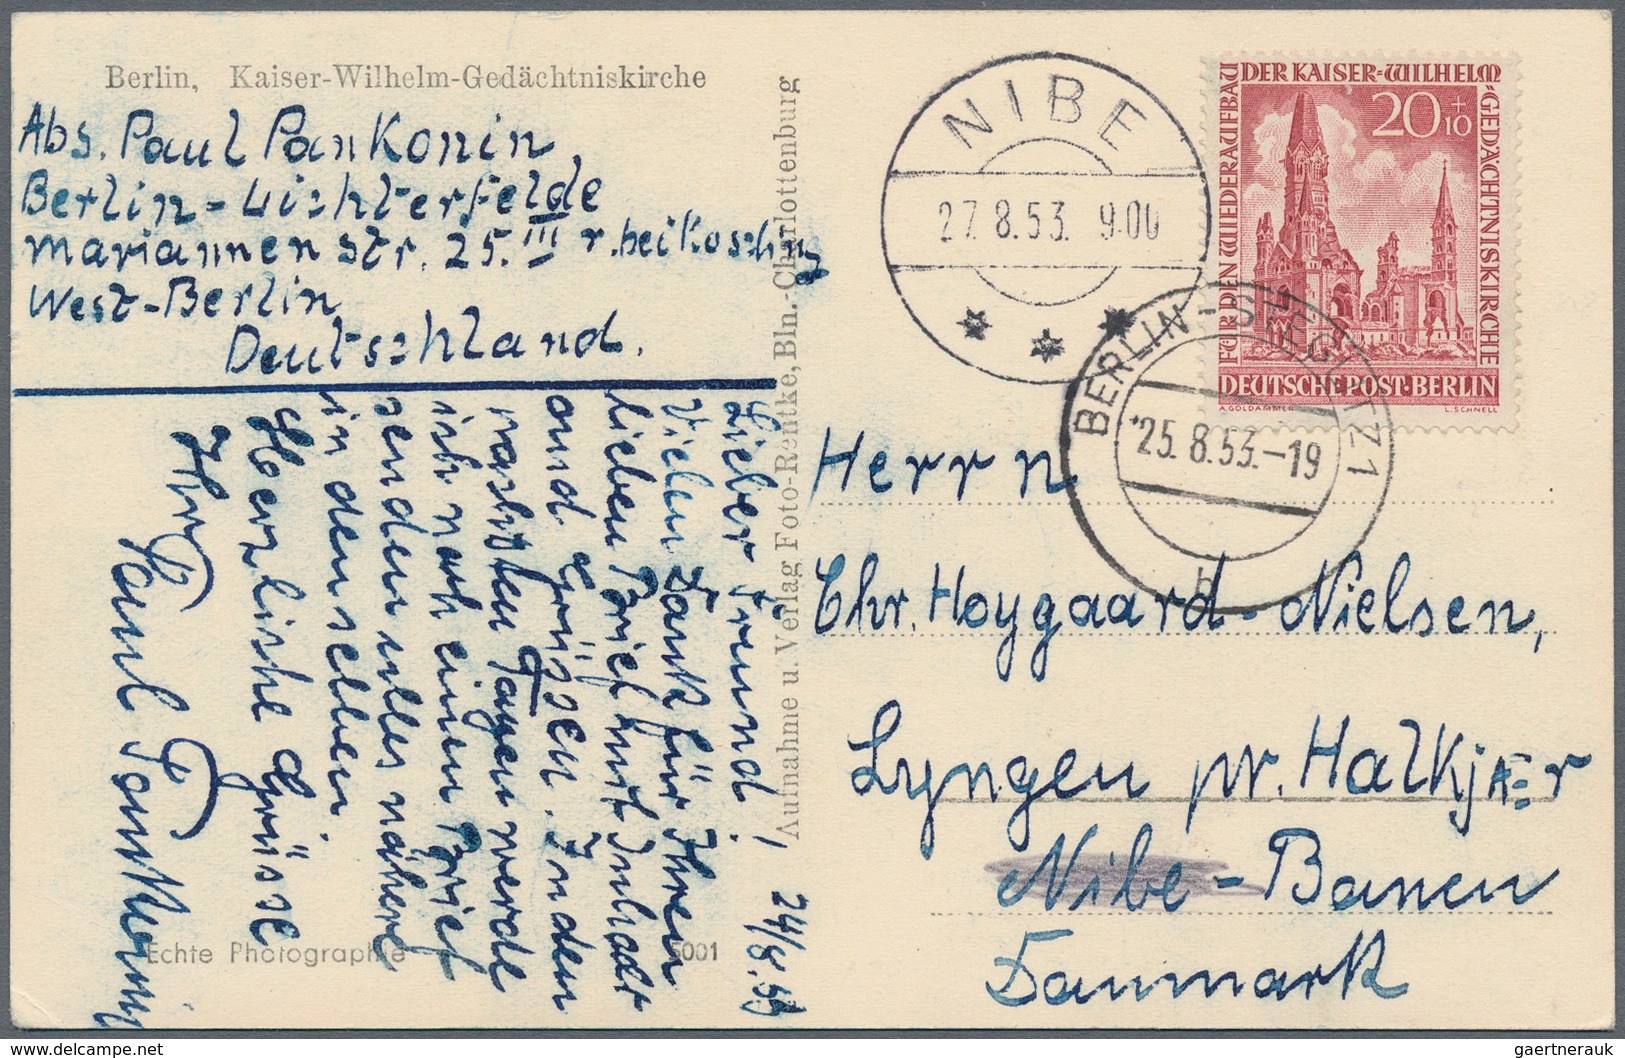 Berlin, Kaiser-Wilhelm-Gedächtniskirche
Abs. Paul Pankonin,
Berlin-Lichterfelde
Mariannenstr. 25. III r. bei Koschny
West-Berlin
Deutschland.
Lieber Freund! 24/8.53
Vielen Dank für Ihren
lieben Brief mit Inhalt
und Grüssen. In den
nächsten Tagen werde
ich noch einen Brief
senden alles nähere
in demselben.
Herzliche Grüsse
Ihr
Paul Pankonin
Echte Photographie 5001
Aufnahme u. Verlag Foto-Rentke, Bln.-Charlottenburg
NIBE
27.8.53. 9.00
FÜR DEN WIEDERAUFBAU DER KAISER-WILHELM-GEDÄCHTNISKIRCHE
20+10
DEUTSCHE POST·BERLIN
A.GOLDAMMER L.SCHNELL
BERLIN-STEGLITZ 1
*25.8.53.-19
b
Herrn
Chr. Hoygaard-Nielsen,
Lyngen pr. Halkjær
Nibe-Banen
Danmark
gaertnerauk